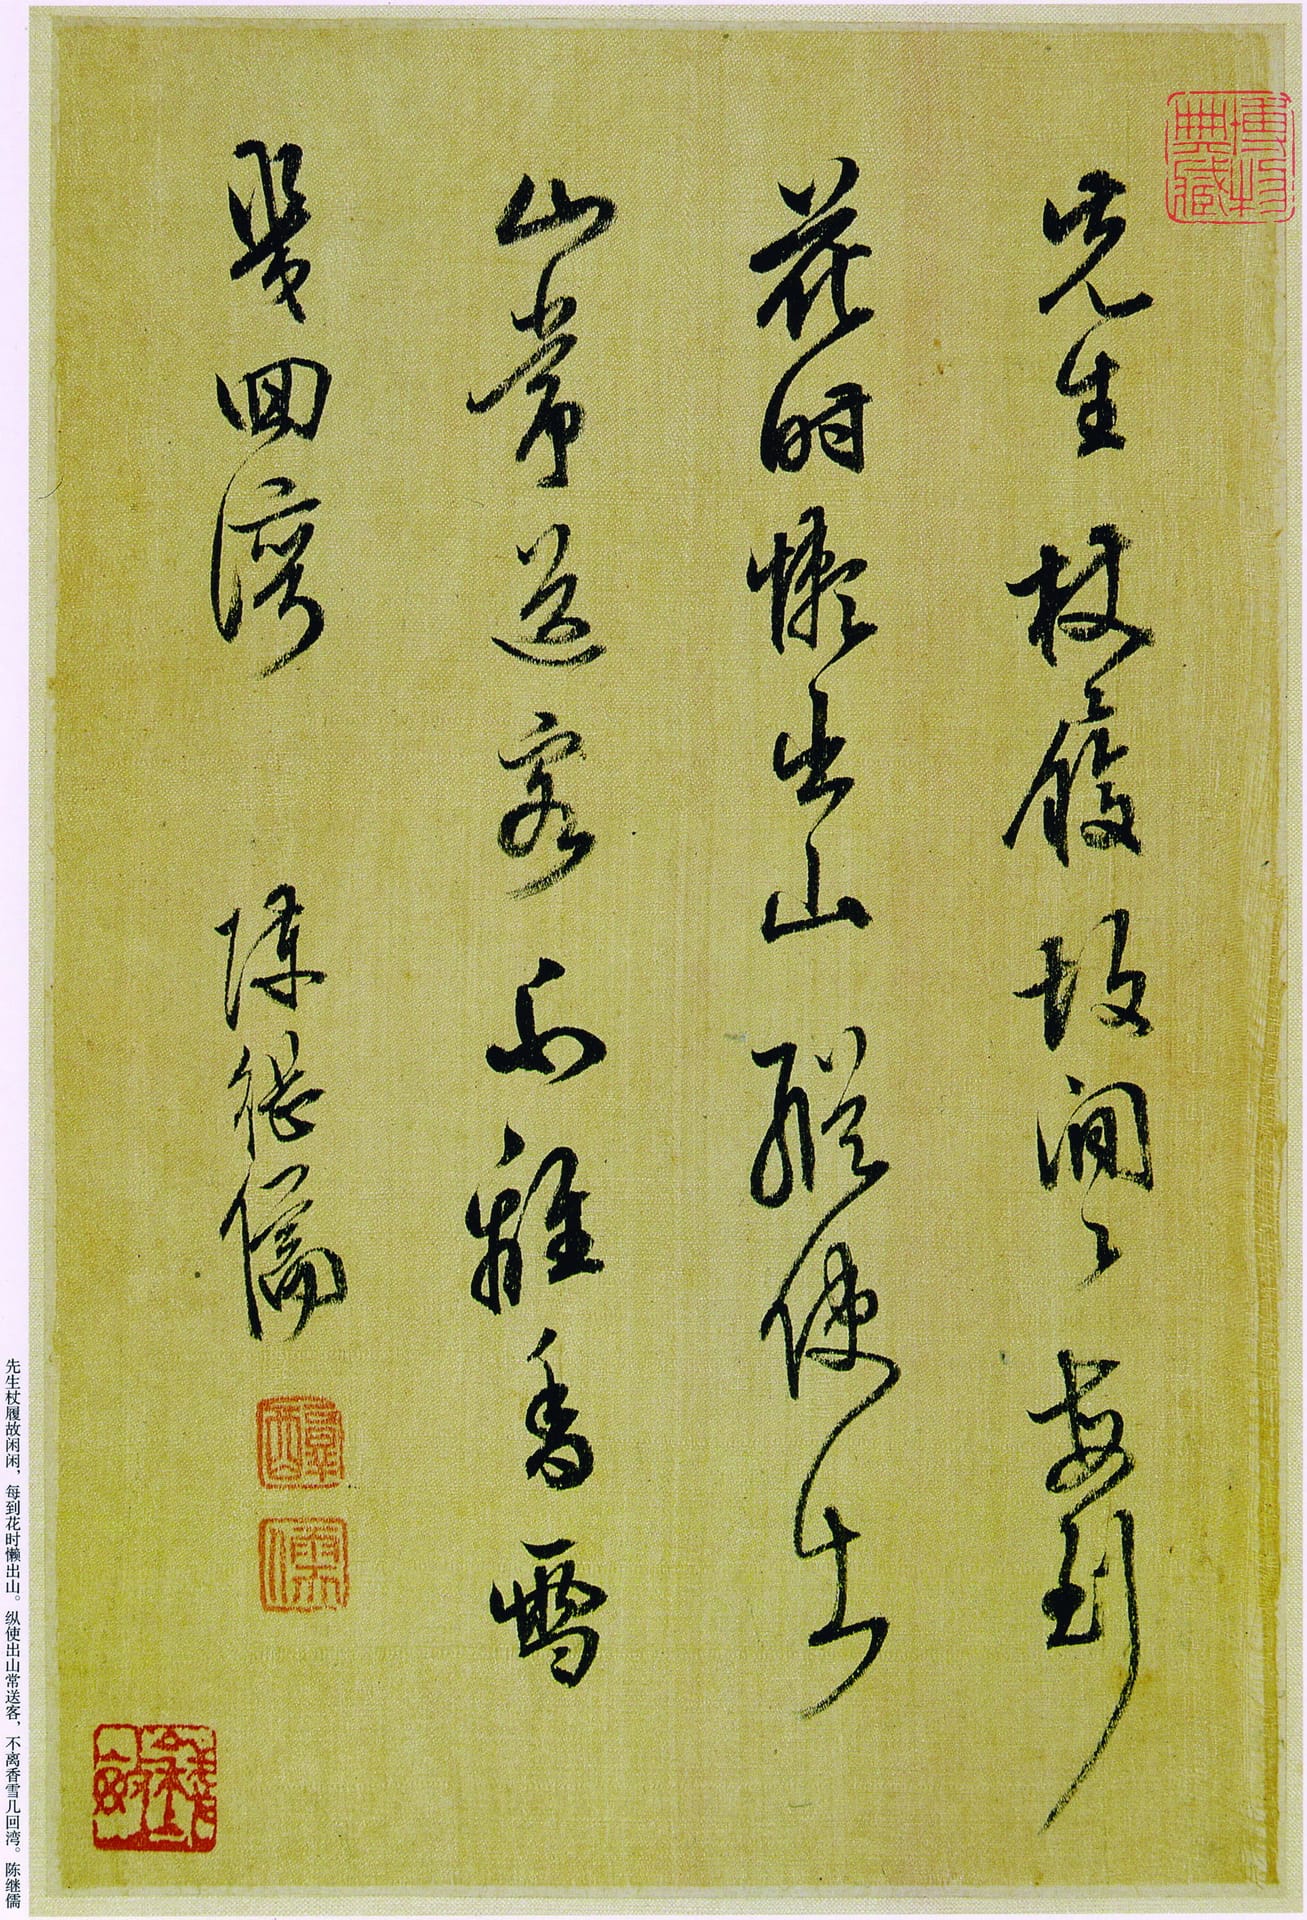 博物
典藏
先生杖履故閒〻每到
花時懶出山縱使出
山常送客不離香雪
幾回灣 陳繼儒
醇
儒
先生杖履故闲闲，每到花时懒出山。纵使出山常送客，不离香雪几回湾。陈继儒